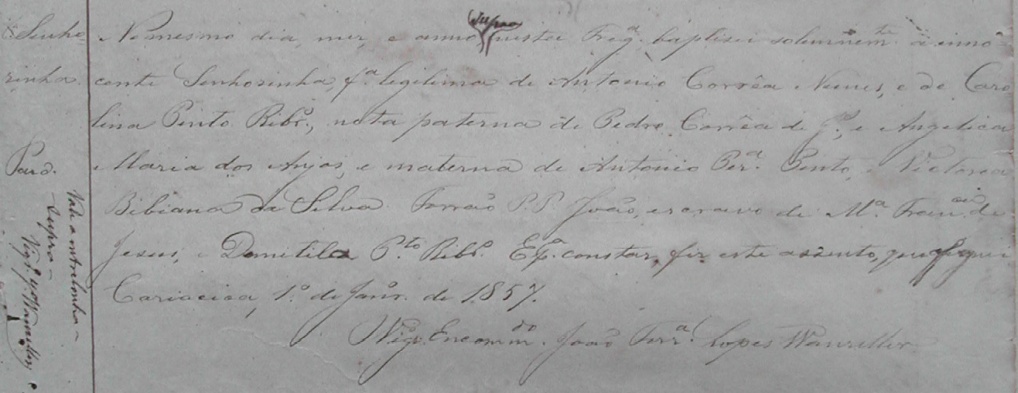 Senho
rinha.
Pard.
Vale a entrelinha –
supra –
Vigº. J. Wanzeller
supra
No mesmo dia, mez, e anno nesta Freg. baptizei solemnemte. a inno
cente Senhorinha, fª. legitima de Antonio Corrêa Nunes, e de Caro
lina Pinto Ribº., neta paterna de Pedro Corrêa de J., e Angelica
Maria dos Anjos, e materna de Antonio Perª. Pinto, e Victoria
Bibiana da Silva. Forão P.P. João, escravo de Mª. Fran. de
Jesus, e Domitila Pto. Ribº. E pª. constar, fiz este assento, que assignei
Cariacica, 1º. de Janº. de 1857.
Vigº. Encommdo. João Ferrª. Lopes Wanzeller